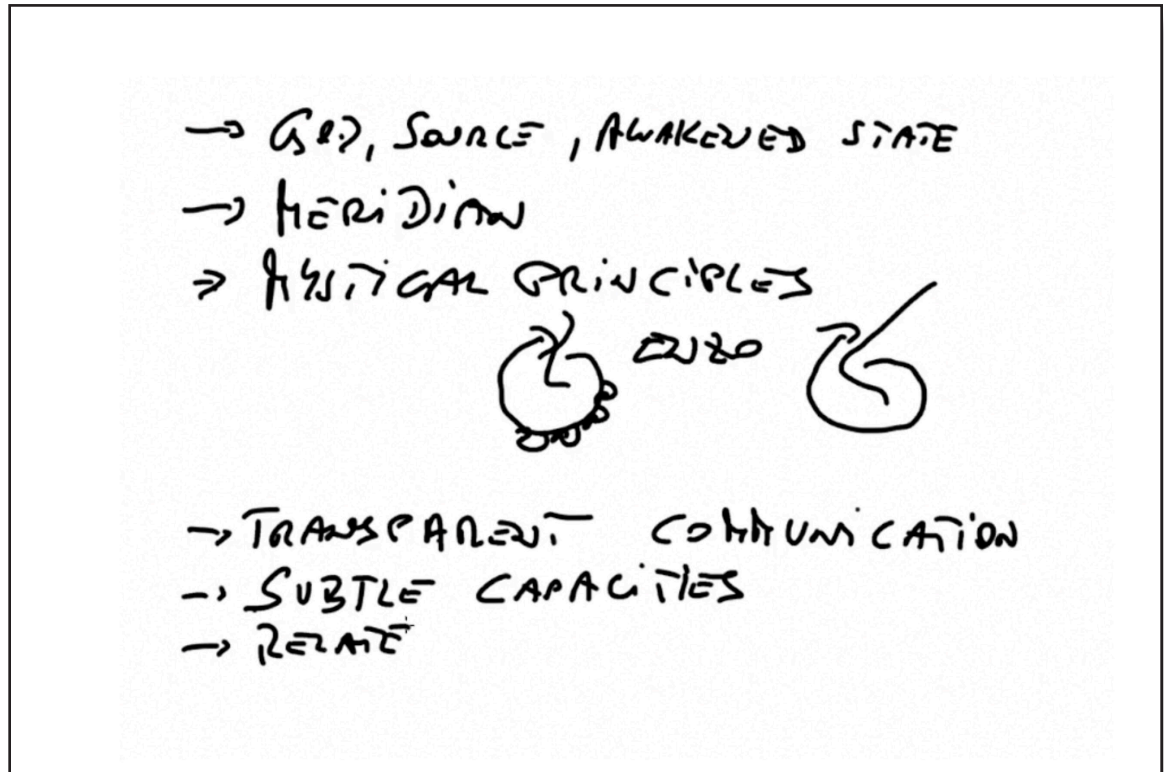 → GOD, SOURCE, AWAKENED STATE
→ MERIDIAN
→ MYSTICAL PRINCIPLES
ENZO
→ TRANSPARENT COMMUNICATION
→ SUBTLE CAPACITIES
→ RELATE